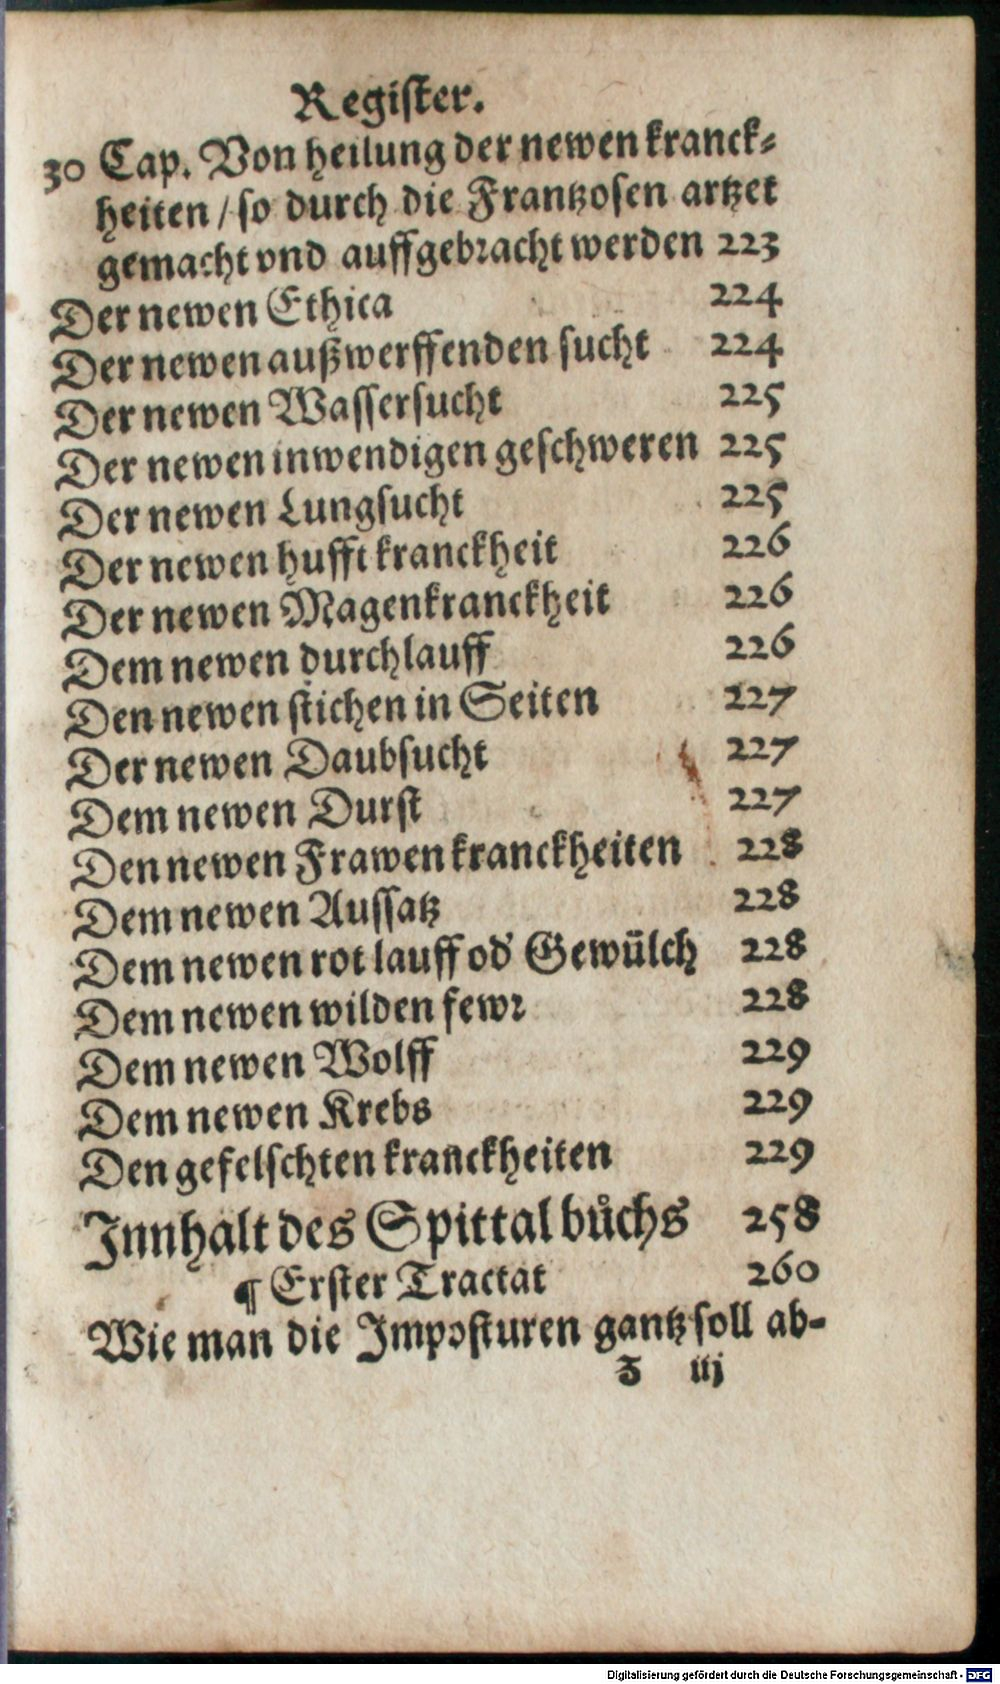 Register.
30 Cap. Von heilung der newen kranck⸗
heiten / so durch die Frantzosen artzet
gemacht vnd auffgebracht werden 223
Der newen Ethica 224
Der newen außwerffenden sucht 224
Der newen Wassersucht 225
Der newen inwendigen geschweren 225
Der newen Lungsucht 225
Der newen hufft kranckheit 226
Der newen Magenkranckheit 226
Dem newen durchlauff 226
Den newen stichen in Seiten 227
Der newen Daubsucht 227
Dem newen Durst 227
Den newen Frawen kranckheiten 228
Dem newen Aussatz 228
Dem newen rot lauff od' Gewülch 228
Dem newen wilden fewr 228
Dem newen Wolff 229
Dem newen Krebs 229
Den gefelschten kranckheiten 229
Innhalt des Spittal bůchs 258
¶ Erster Tractat 260
Wie man die Imposturen gantz soll ab-
Z iij
Digitalisierung gefördert durch die Deutsche Forschungsgemeinschaft - DFG